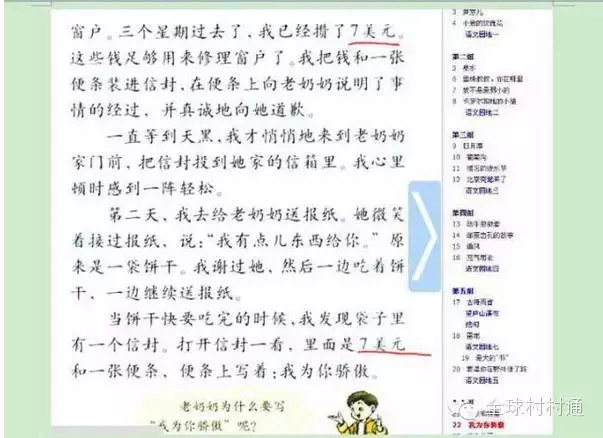 窗户。三个星期过去了,我已经攒了7美元。
这些钱足够用来修理窗户了。我把钱和一张
便条装进信封,在便条上向老奶奶说明了事
情的经过,并真诚地向她道歉。
一直等到天黑,我才悄悄地来到老奶奶
家门前,把信封投到她家的信箱里。我心里
顿时感到一阵轻松。
第二天,我去给老奶奶送报纸。她微笑
着接过报纸,说:“我有点儿东西给你。”原
来是一袋饼干。我谢过她,然后一边吃着饼
干,一边继续送报纸。
当饼干快要吃完的时候,我发现袋子里
有一个信封。打开信封一看,里面是7美元
和一张便条,便条上写着:我为你骄傲。
老奶奶为什么要写
“我为你骄傲”呢?
语文园地一
第二组
语文园地二
第三组
9 日月潭
10 葡萄沟
语文园地三
第四组
15 画风
语文园地四
第五组
17 古诗两首
望庐山瀑布
绝句
18 雷雨
19 最大的“书”
语文园地五
22 我为你骄傲
全球村村通